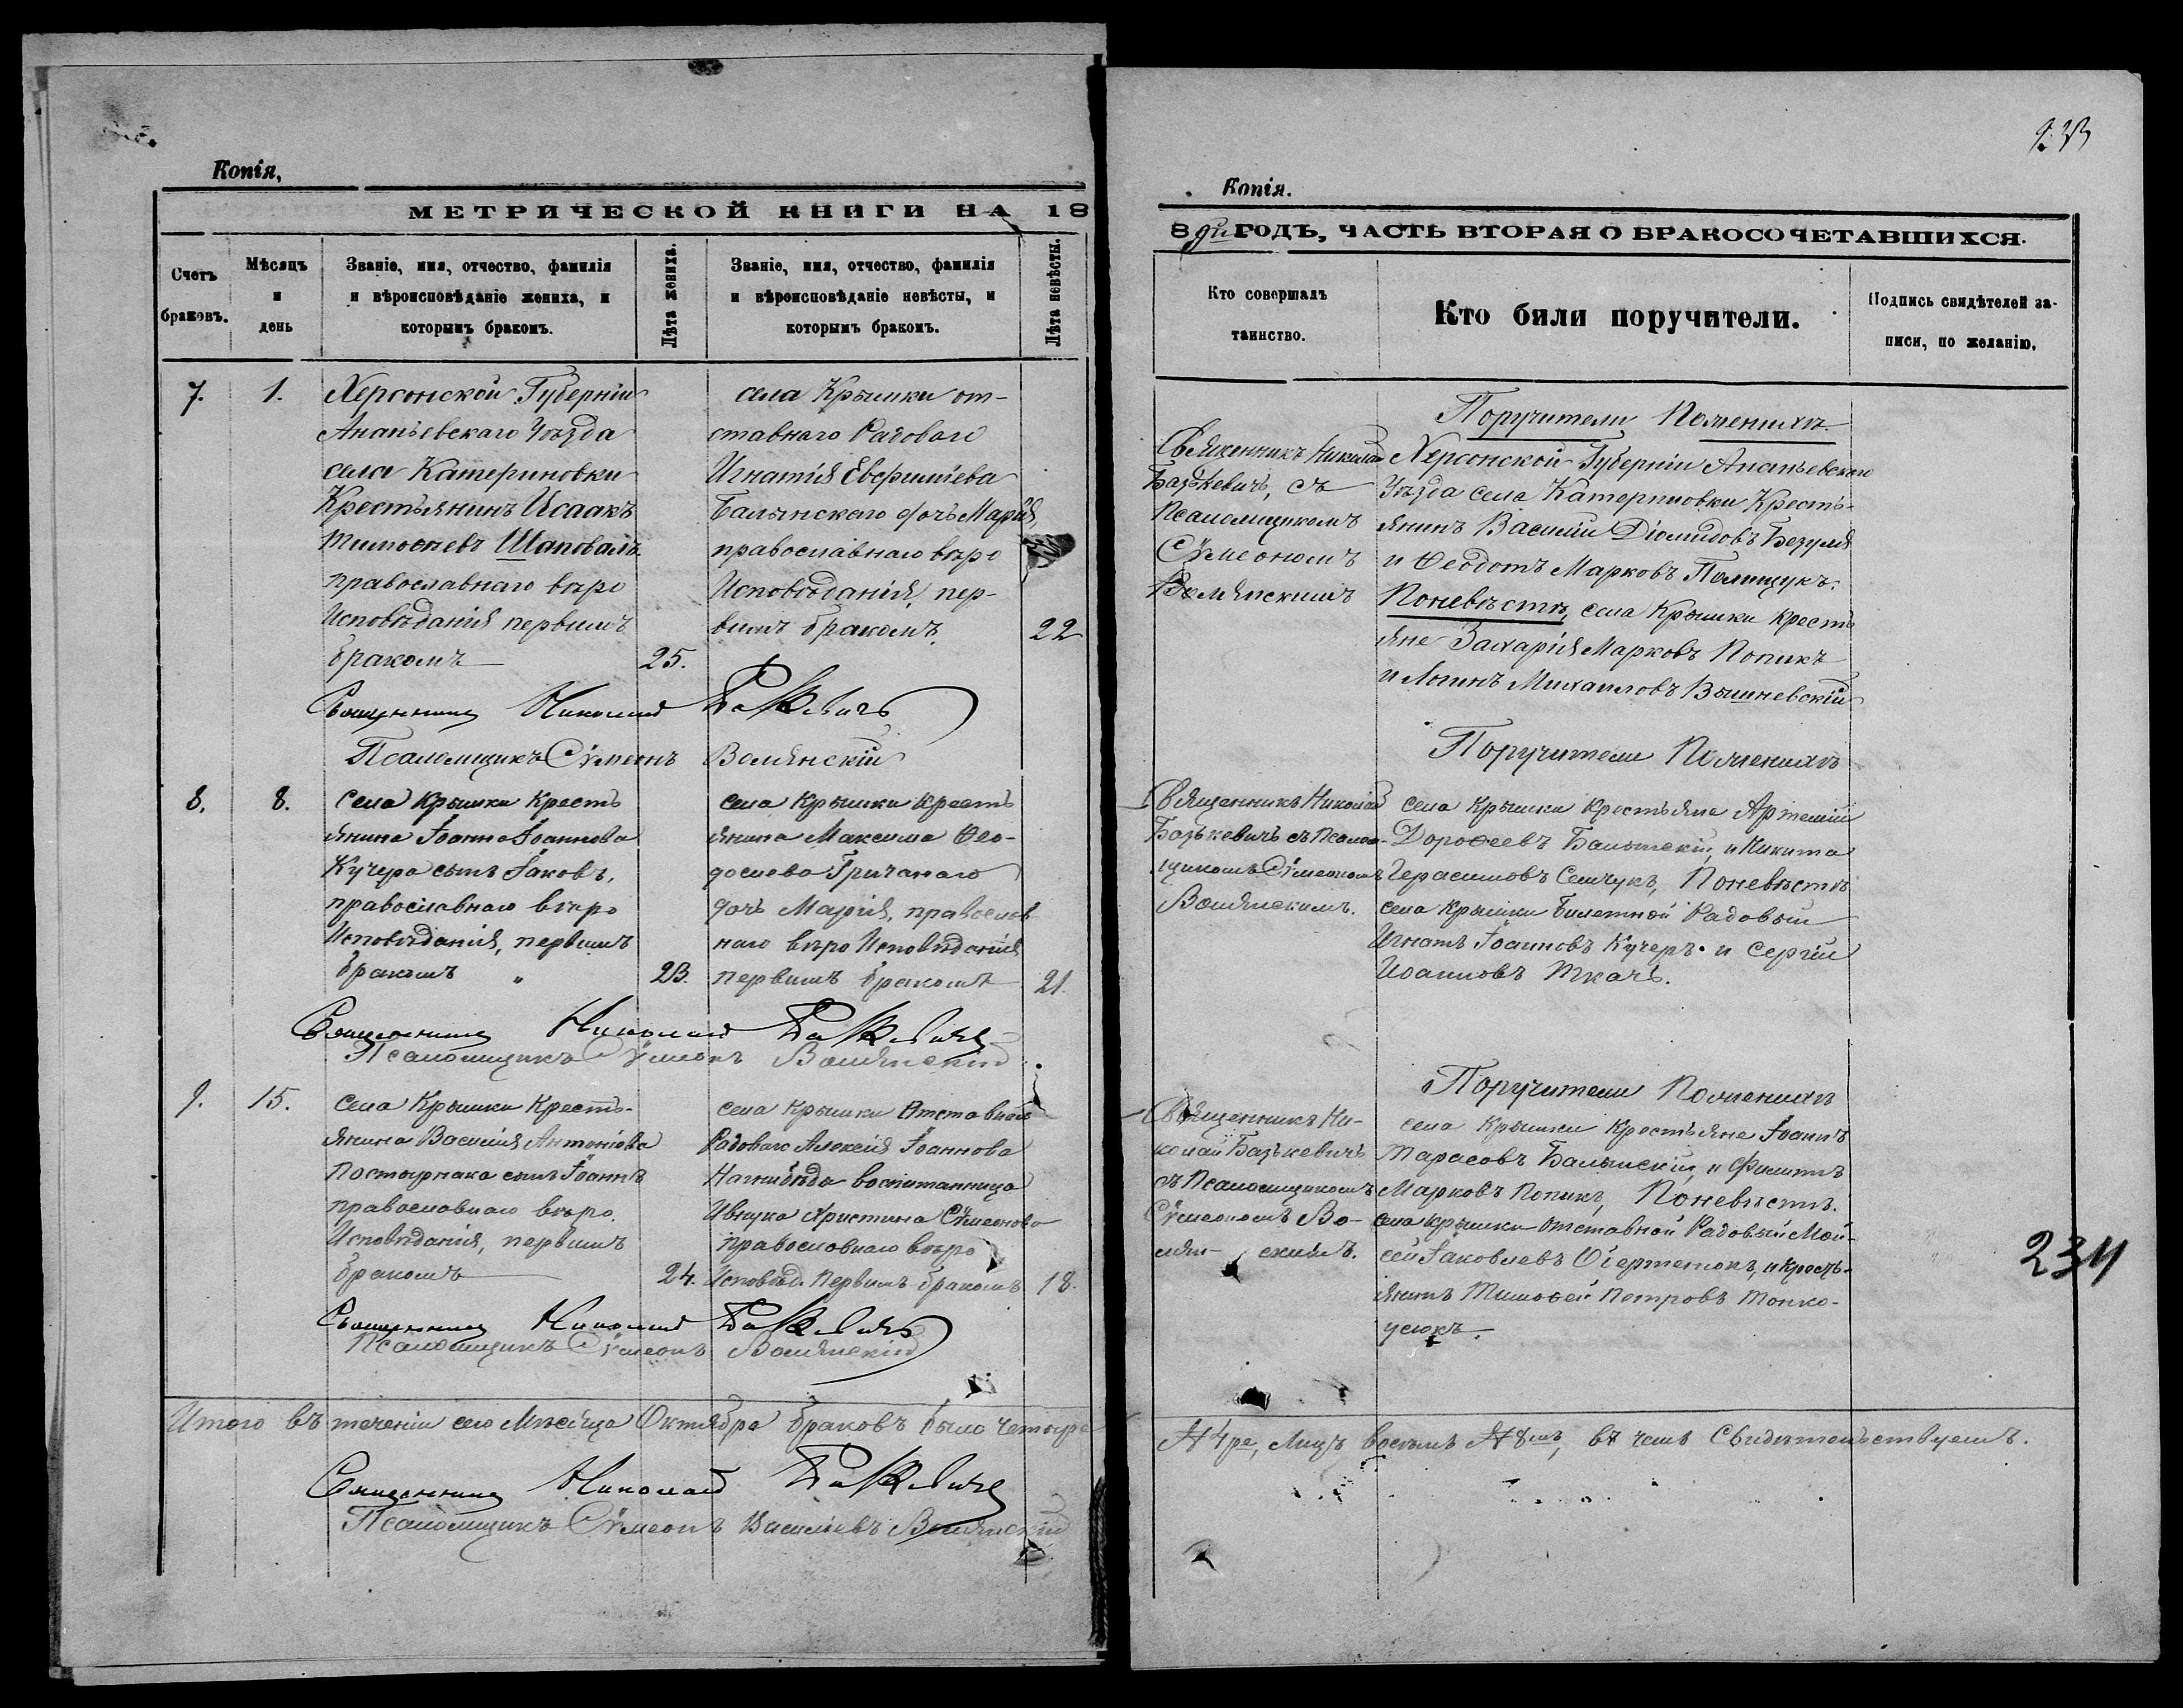 Копія,
МЕТРИЧЕСКОЙ КНИГИ НА 18
Счетъ браковъ.
Мѣсяцъ и день
Званіе, имя, отчество, фамилія и вѣроисповѣданіе жениха, и которымъ бракомъ.
Лѣта жениха.
Званіе, имя, отчество, фамилія и вѣроисповѣданіе невѣсты, и которымъ бракомъ.
Лѣта невѣсты.
7.
1.
Херсонской Губерніи
Ананьевскаго Уѣзда
села Катериновки
Крестьянинъ Исаакъ
Тимоѳеевъ Шаповалъ
православнаго вѣро
Исповѣданія первымъ
бракомъ
25.
села Крымки от-
ставнаго Радоваго
Игнатія Евфиміева
Балынского дочь Марія,
православнаго вѣро
Исповѣданія, пер-
вымъ бракомъ.
22
Священникъ Николай Базкевичъ
Псаломщикъ Сѵмеонъ Волянскій
8.
8.
села Крымки Кресть
янина Іоанна Іоаннова
Кучера сынъ Іаковъ,
православнаго вѣро
Исповѣданія, первымъ
бракомъ "
23.
села Крымки Кресть
янина Максима Ѳео-
досиева Гричанаго
дочь Марія, православ
наго вѣро Исповѣданія
первымъ бракомъ
21.
Священникъ Николай Базкевичъ
Псаломщикъ Сѵмеонъ Волянскій
9.
15.
села Крымки Кресть-
янина Василія Антоніева
Постырнака сынъ Іоаннъ
православнаго вѣро
Исповѣданія, первымъ
бракомъ
24.
села Крымки Отставнаго
Радоваго Алексія Іоаннова
Нагнибѣда воспитанница
Христина Сѵмеонова
православнаго вѣро
Исповѣд. Первымъ бракомъ
18.
Священникъ Николай Базкевичъ
Псаломщикъ Сѵмеонъ Волянскій
Итого въ теченіи сего Мѣсяца Октября браковъ было четыре
Священникъ Николай Базкевичъ
Псаломщикъ Сѵмеонъ Василіевъ Волянскій
Копія.
8 ГОДЪ, ЧАСТЬ ВТОРАЯ О БРАКОСОЧЕТАВШИХСЯ.
Кто совершалъ таинство.
Кто были поручители.
Подпись свидѣтелей записи, по желанію.
Священникъ Николай
Базькевичъ, съ
Псаломщикомъ
Сѵмеономъ
Волянскимъ
Поручители Поженихѣ
Херсонской Губерніи Ананьевскаго
Уѣзда села Катериновки Кресть-
янинъ Василій Діомидовъ Безуля
и Ѳеодотъ Марковъ Полищукъ.
Поневѣстѣ, села Крымки кресть
яне Захарія Марковъ Попикъ
и Логинъ Михаиловъ Вишневскій
Священникъ Николай
Базькевичъ съ Псалом-
щикомъ Сѵмеономъ
Волянскимъ.
Поручители Поженихѣ
села Крымки крестьяне Артемій
Дороѳеевъ Балынскій, и Никита
Герасимовъ Семчукъ, Поневѣстѣ
села Крымки билетной Радовый
Игнатъ Іоанновъ Кучеръ и Сергій
Иоанновъ Ткачъ.
Священникъ Ни-
колай Базькевичъ
съ Псаломщикомъ
Сѵмеономъ Во-
лян- скимъ.
Поручители Поженихѣ
села Крымки Крестьяне Іоаннъ
Тарасовъ Балынскій, и Филиппъ
Марковъ Попикъ, Поневѣстѣ.
села Крымки отставной Радовый Мой-
сей Іаковлевъ Очертенюкъ, и кресть-
янинъ Тимоѳей Петровъ Тонко-
усюкъ.
234
№ 4ре, Лицъ восемь № 8мь, въ чемъ Свидѣтельствуемъ.